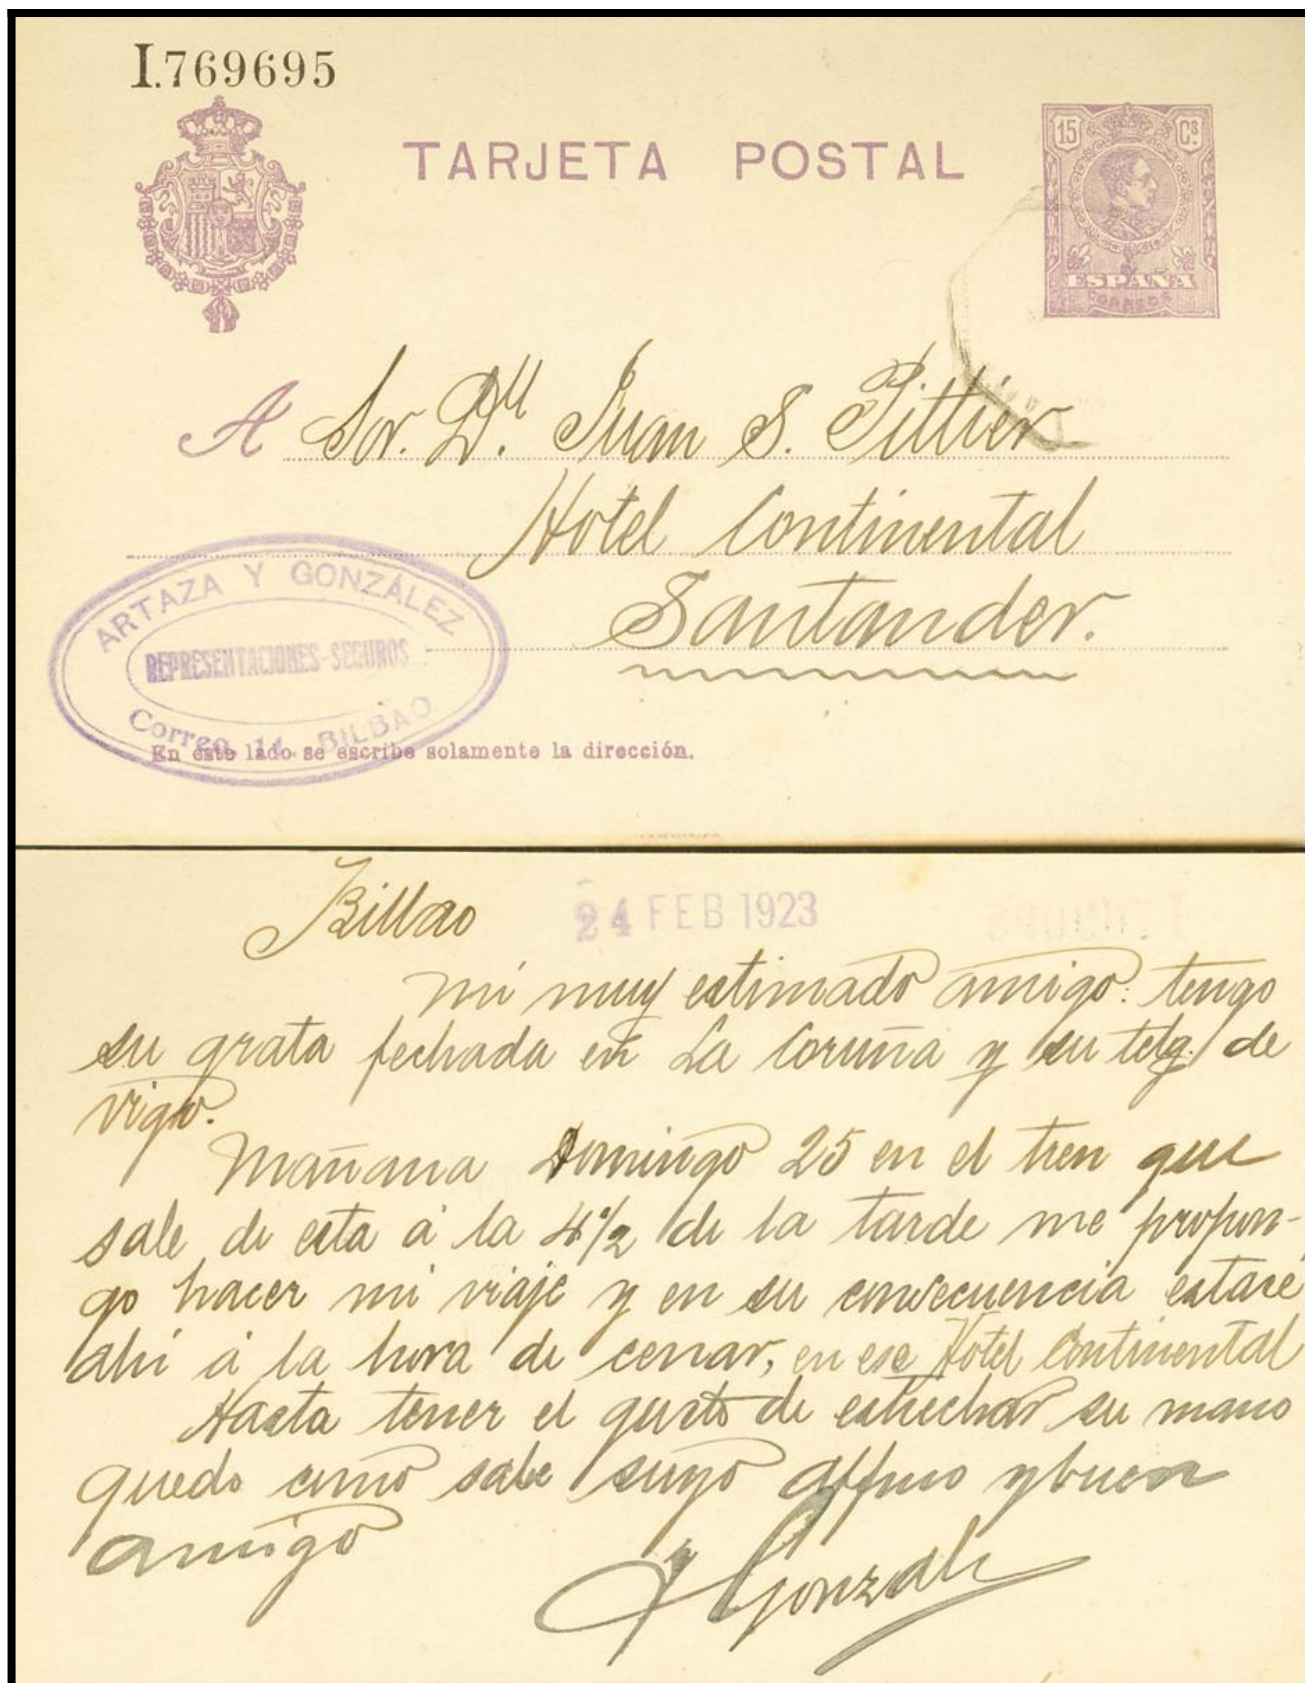 I.769695
TARJETA POSTAL
15 Cs.
ESPAÑA
CORREOS
A Sor. Dn. Juan S. Pittier
Hotel Continental
Santander.
ARTAZA Y GONZÁLEZ
REPRESENTACIONES-SEGUROS
Correo, 14. BILBAO
En este lado se escribe solamente la dirección.
Bilbao 24 FEB 1923
mi muy estimado amigo: tengo
su grata fechada en La Coruña y su telg. de
Vigo.
Mañana Domingo 25 en el tren que
sale de esta á la 4 1/2 de la tarde me propon-
go hacer mi viaje y en su consecuencia estaré
ahi á la hora de cenar, en ese Hotel Continental
Hasta tener el gusto de estrechar su mano
quedo como sabe suyo affmo y buen
amigo
Gonzalez